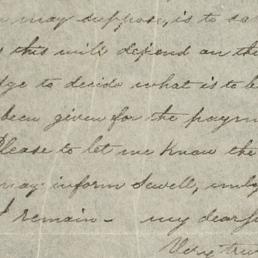 may suppose, is to sa
this will depend on the
dge to decide what is to be
been given for the paym
Please to let me know the
may inform Sewell, only
I remain - my dear
Very tru